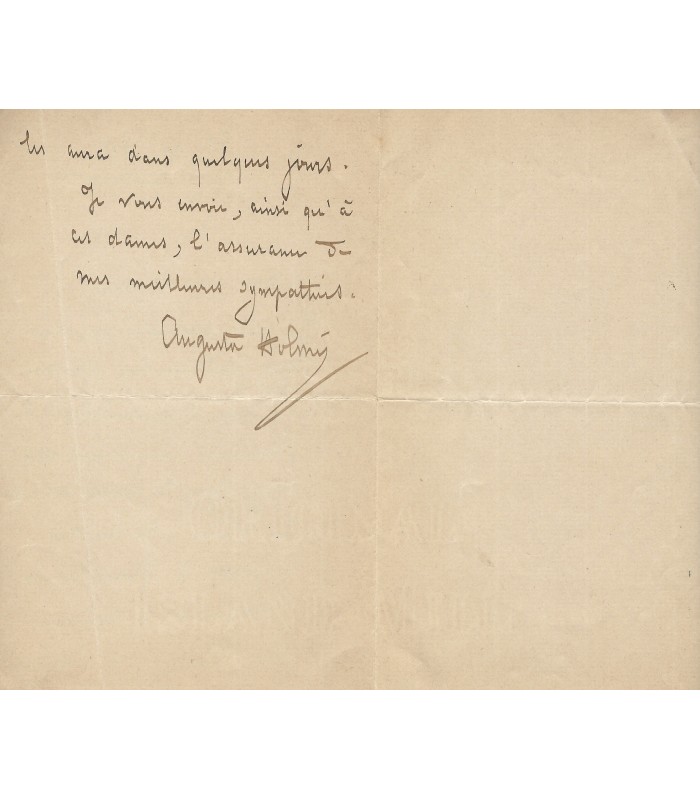 les aura dans quelques jours.
Je vous envoie, ainsi qu'à
ces dames, l'assurance de
mes meilleures sympathies.
Augusta Holmès